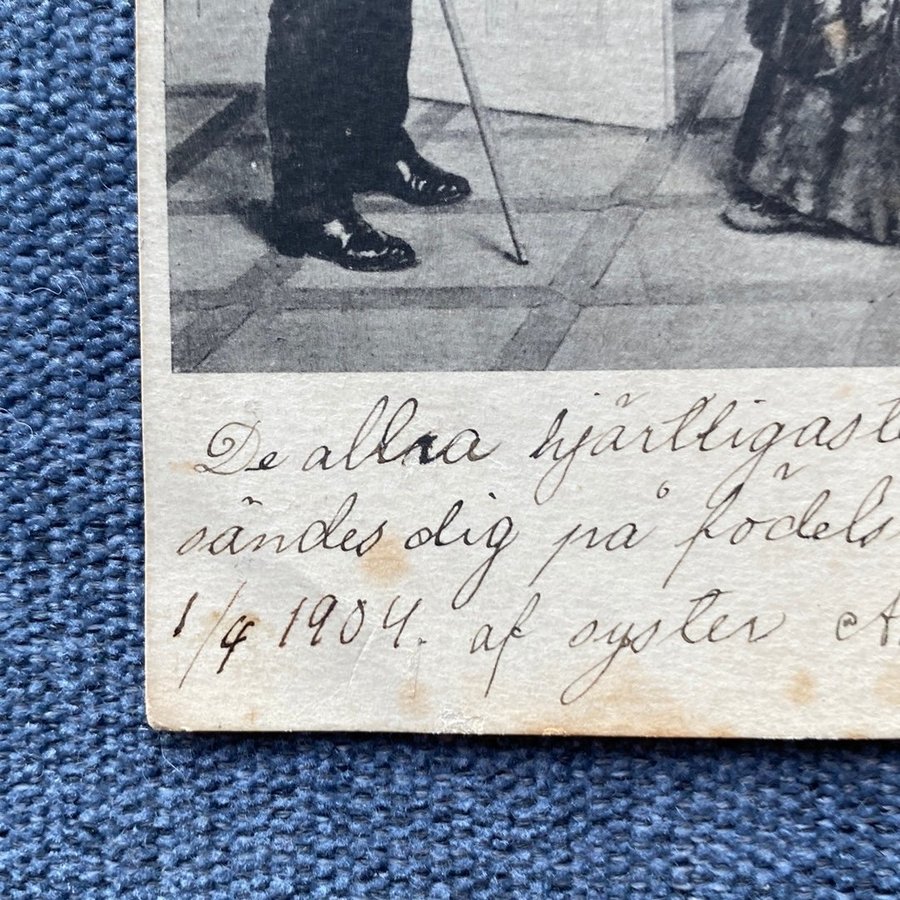 De allra hjärtligaste
sändes dig på födels
1/4 1904. af syster A